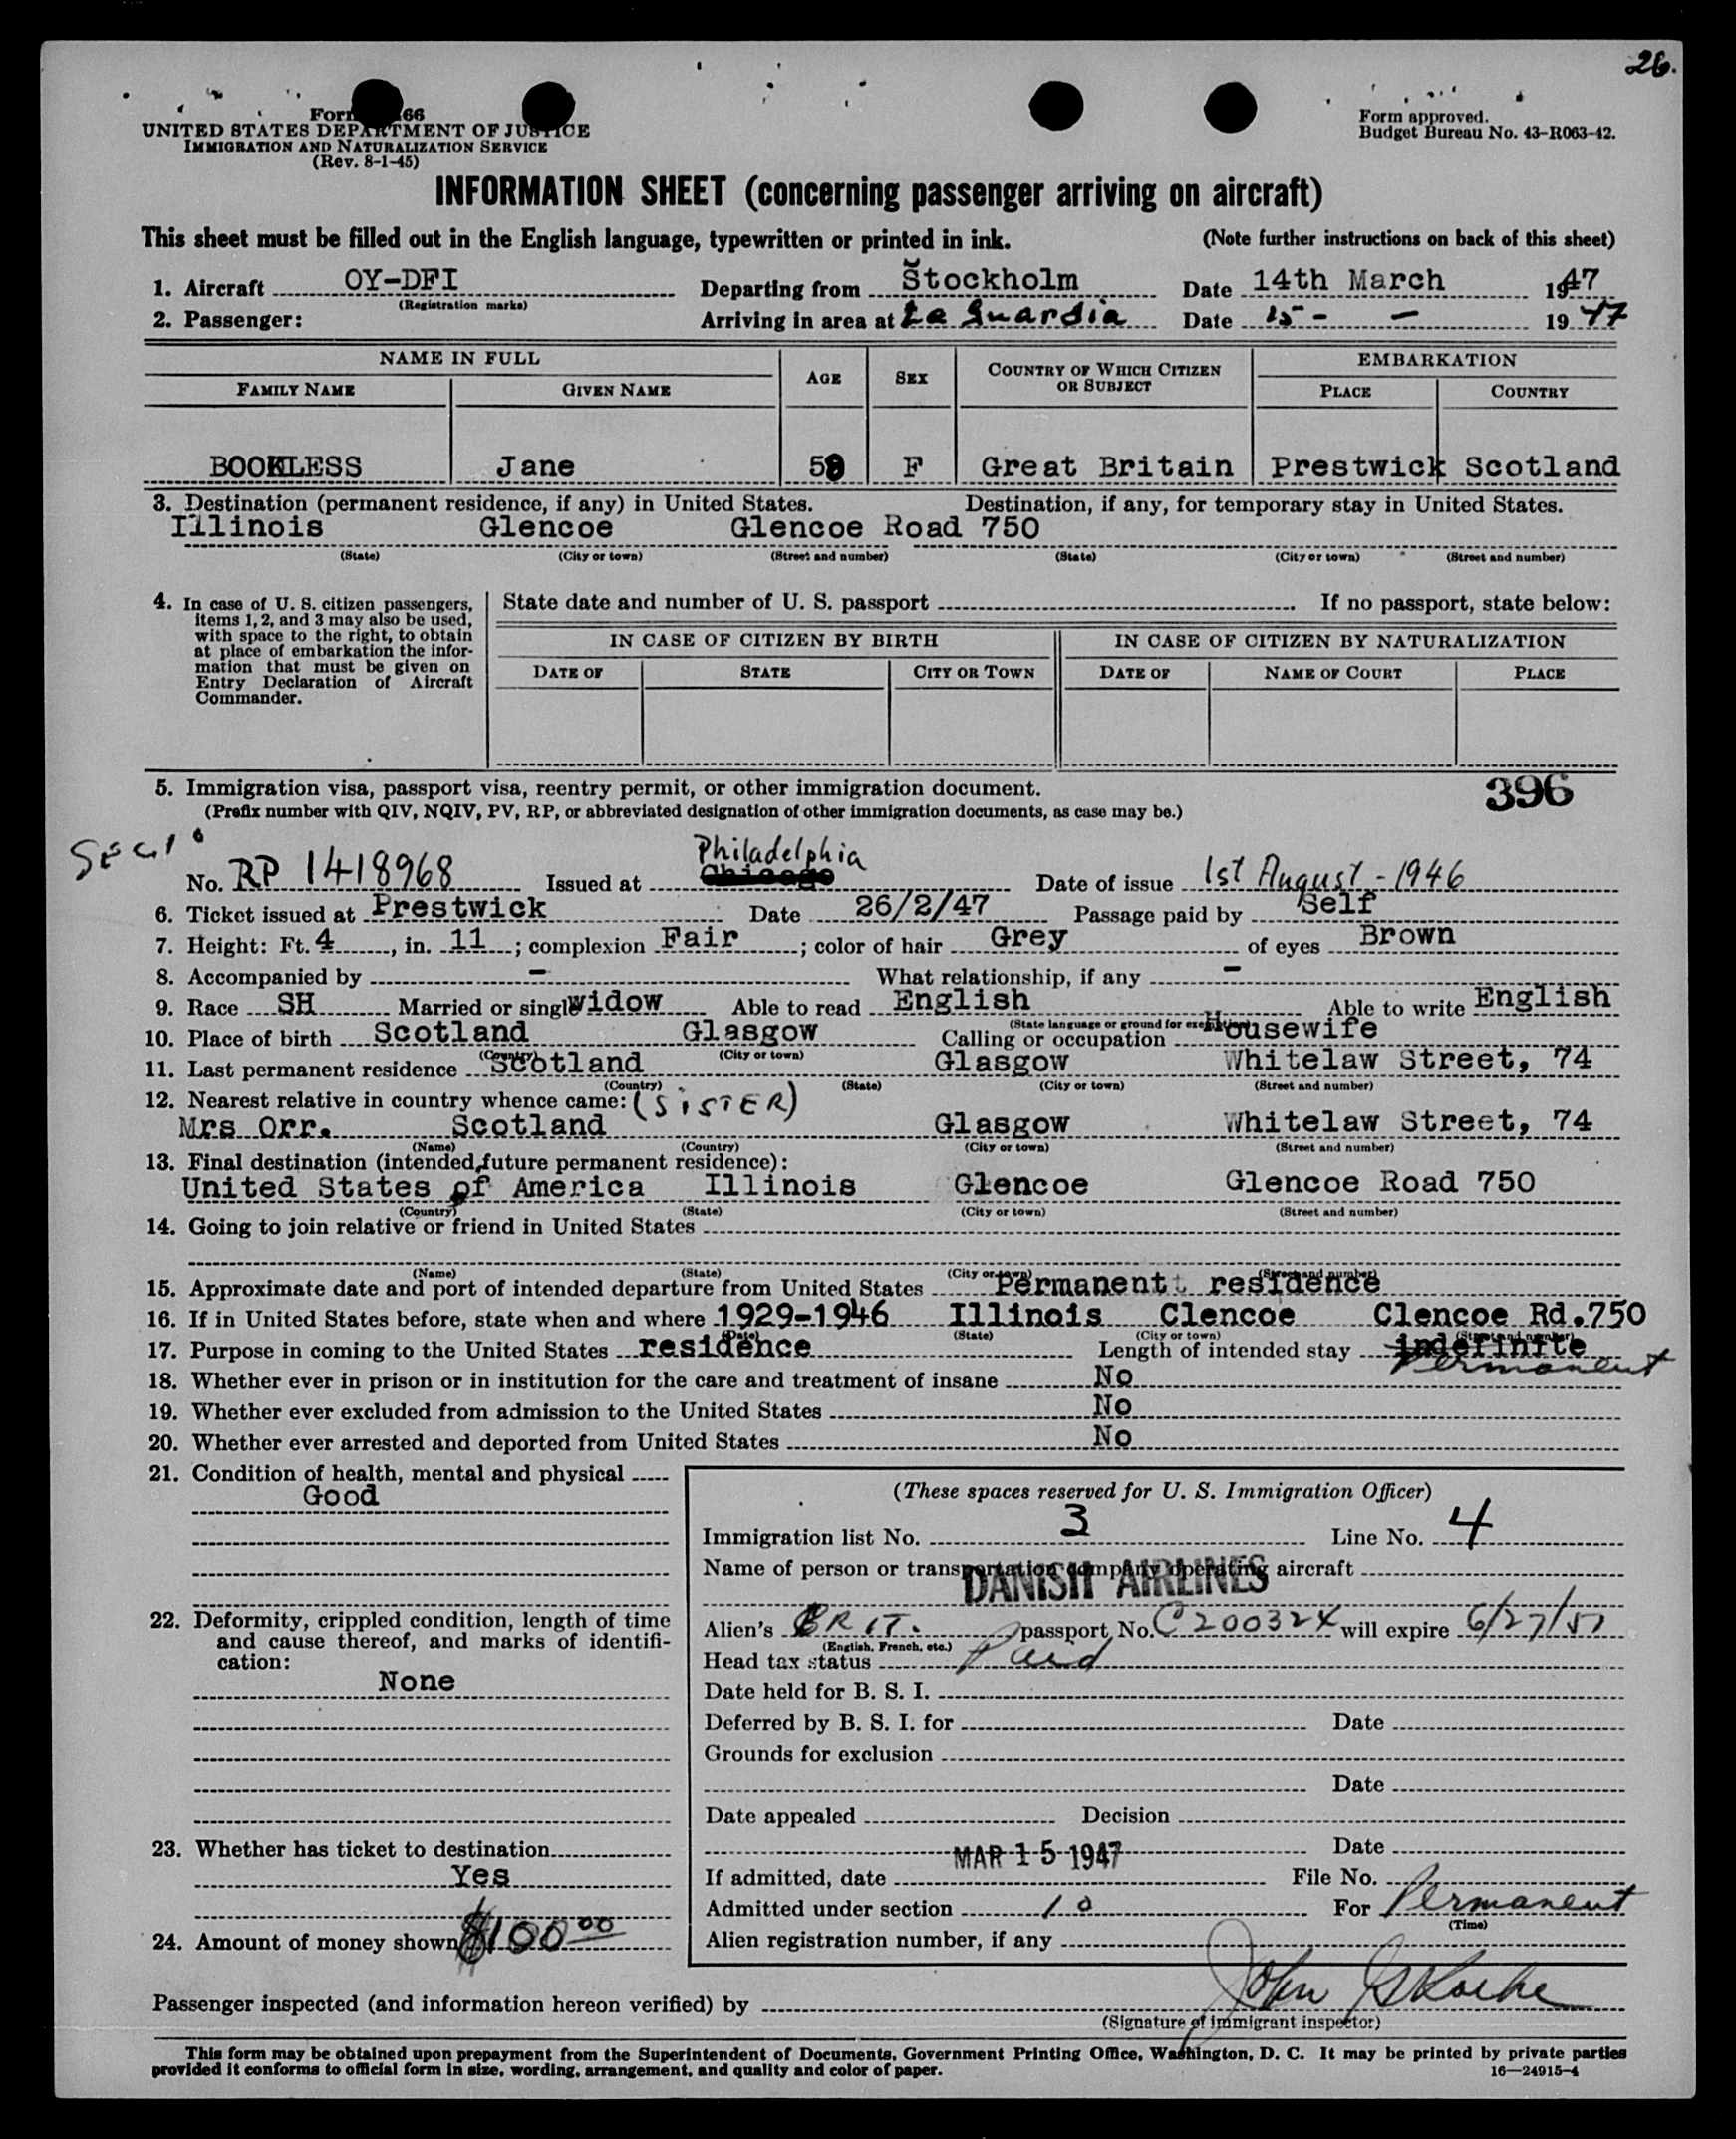 26.
Form 66
UNITED STATES DEPARTMENT OF JUSTICE
IMMIGRATION AND NATURALIZATION SERVICE
(Rev. 8-1-45)
Form approved.
Budget Bureau No. 43-R063-42.
INFORMATION SHEET (concerning passenger arriving on aircraft)
This sheet must be filled out in the English language, typewritten or printed in ink. (Note further instructions on back of this sheet)
1. Aircraft OY-DFI Departing from Stockholm Date 14th March 1947
(Registration marks)
2. Passenger: Arriving in area at La Guardia Date 15 - - 1947
NAME IN FULL AGE SEX COUNTRY OF WHICH CITIZEN OR SUBJECT EMBARKATION
FAMILY NAME GIVEN NAME PLACE COUNTRY
BOOKLESS Jane F Great Britain Prestwick Scotland
3. Destination (permanent residence, if any) in United States. Destination, if any, for temporary stay in United States.
Illinois Glencoe Glencoe Road 750
(State) (City or town) (Street and number) (State) (City or town) (Street and number)
4. In case of U. S. citizen passengers, items 1, 2, and 3 may also be used, with space to the right, to obtain at place of embarkation the information that must be given on Entry Declaration of Aircraft Commander.
State date and number of U. S. passport . If no passport, state below:
IN CASE OF CITIZEN BY BIRTH IN CASE OF CITIZEN BY NATURALIZATION
DATE OF STATE CITY OR TOWN DATE OF NAME OF COURT PLACE
5. Immigration visa, passport visa, reentry permit, or other immigration document. 396
(Prefix number with QIV, NQIV, PV, RP, or abbreviated designation of other immigration documents, as case may be.)
Philadelphia
No. RP 1418968 Issued at Chicago Date of issue 1st August - 1946
6. Ticket issued at Prestwick Date 26/2/47 Passage paid by Self
7. Height: Ft. 4, in. 11; complexion Fair; color of hair Grey of eyes Brown
8. Accompanied by - What relationship, if any -
9. Race SH Married or single widow Able to read English Able to write English
(State language or ground for exemption)
10. Place of birth Scotland Glasgow Calling or occupation Housewife
(Country) (City or town)
11. Last permanent residence Scotland Glasgow Whitelaw Street, 74
(Country) (State) (City or town) (Street and number)
12. Nearest relative in country whence came: (SISTER)
Mrs Orr. Scotland Glasgow Whitelaw Street, 74
(Name) (Country) (City or town) (Street and number)
13. Final destination (intended future permanent residence):
United States of America Illinois Glencoe Glencoe Road 750
(Country) (State) (City or town) (Street and number)
14. Going to join relative or friend in United States
(Name) (State) (City or town) (Street and number)
15. Approximate date and port of intended departure from United States Permanent residence
16. If in United States before, state when and where 1929-1946 Illinois Clencoe Clencoe Rd.750
(Date) (State) (City or town) (Street and number)
17. Purpose in coming to the United States residence Length of intended stay indefinite
Permanent
18. Whether ever in prison or in institution for the care and treatment of insane No
19. Whether ever excluded from admission to the United States No
20. Whether ever arrested and deported from United States No
21. Condition of health, mental and physical
Good
22. Deformity, crippled condition, length of time and cause thereof, and marks of identification:
None
23. Whether has ticket to destination
Yes
24. Amount of money shown $100 00
(These spaces reserved for U. S. Immigration Officer)
Immigration list No. 3 Line No. 4
Name of person or transportation company operating aircraft
DANISH AIRLINES
Alien's BRIT. passport No. C200324 will expire 6/27/51
(English, French, etc.)
Head tax status Paid
Date held for B. S. I.
Deferred by B. S. I. for Date
Grounds for exclusion
Date
Date appealed Decision
Date
MAR 15 1947
If admitted, date File No.
Admitted under section 10 For Permanent
(Time)
Alien registration number, if any
Passenger inspected (and information hereon verified) by John
(Signature of immigrant inspector)
This form may be obtained upon prepayment from the Superintendent of Documents, Government Printing Office, Washington, D. C. It may be printed by private parties
provided it conforms to official form in size, wording, arrangement, and quality and color of paper. 16—24915-4